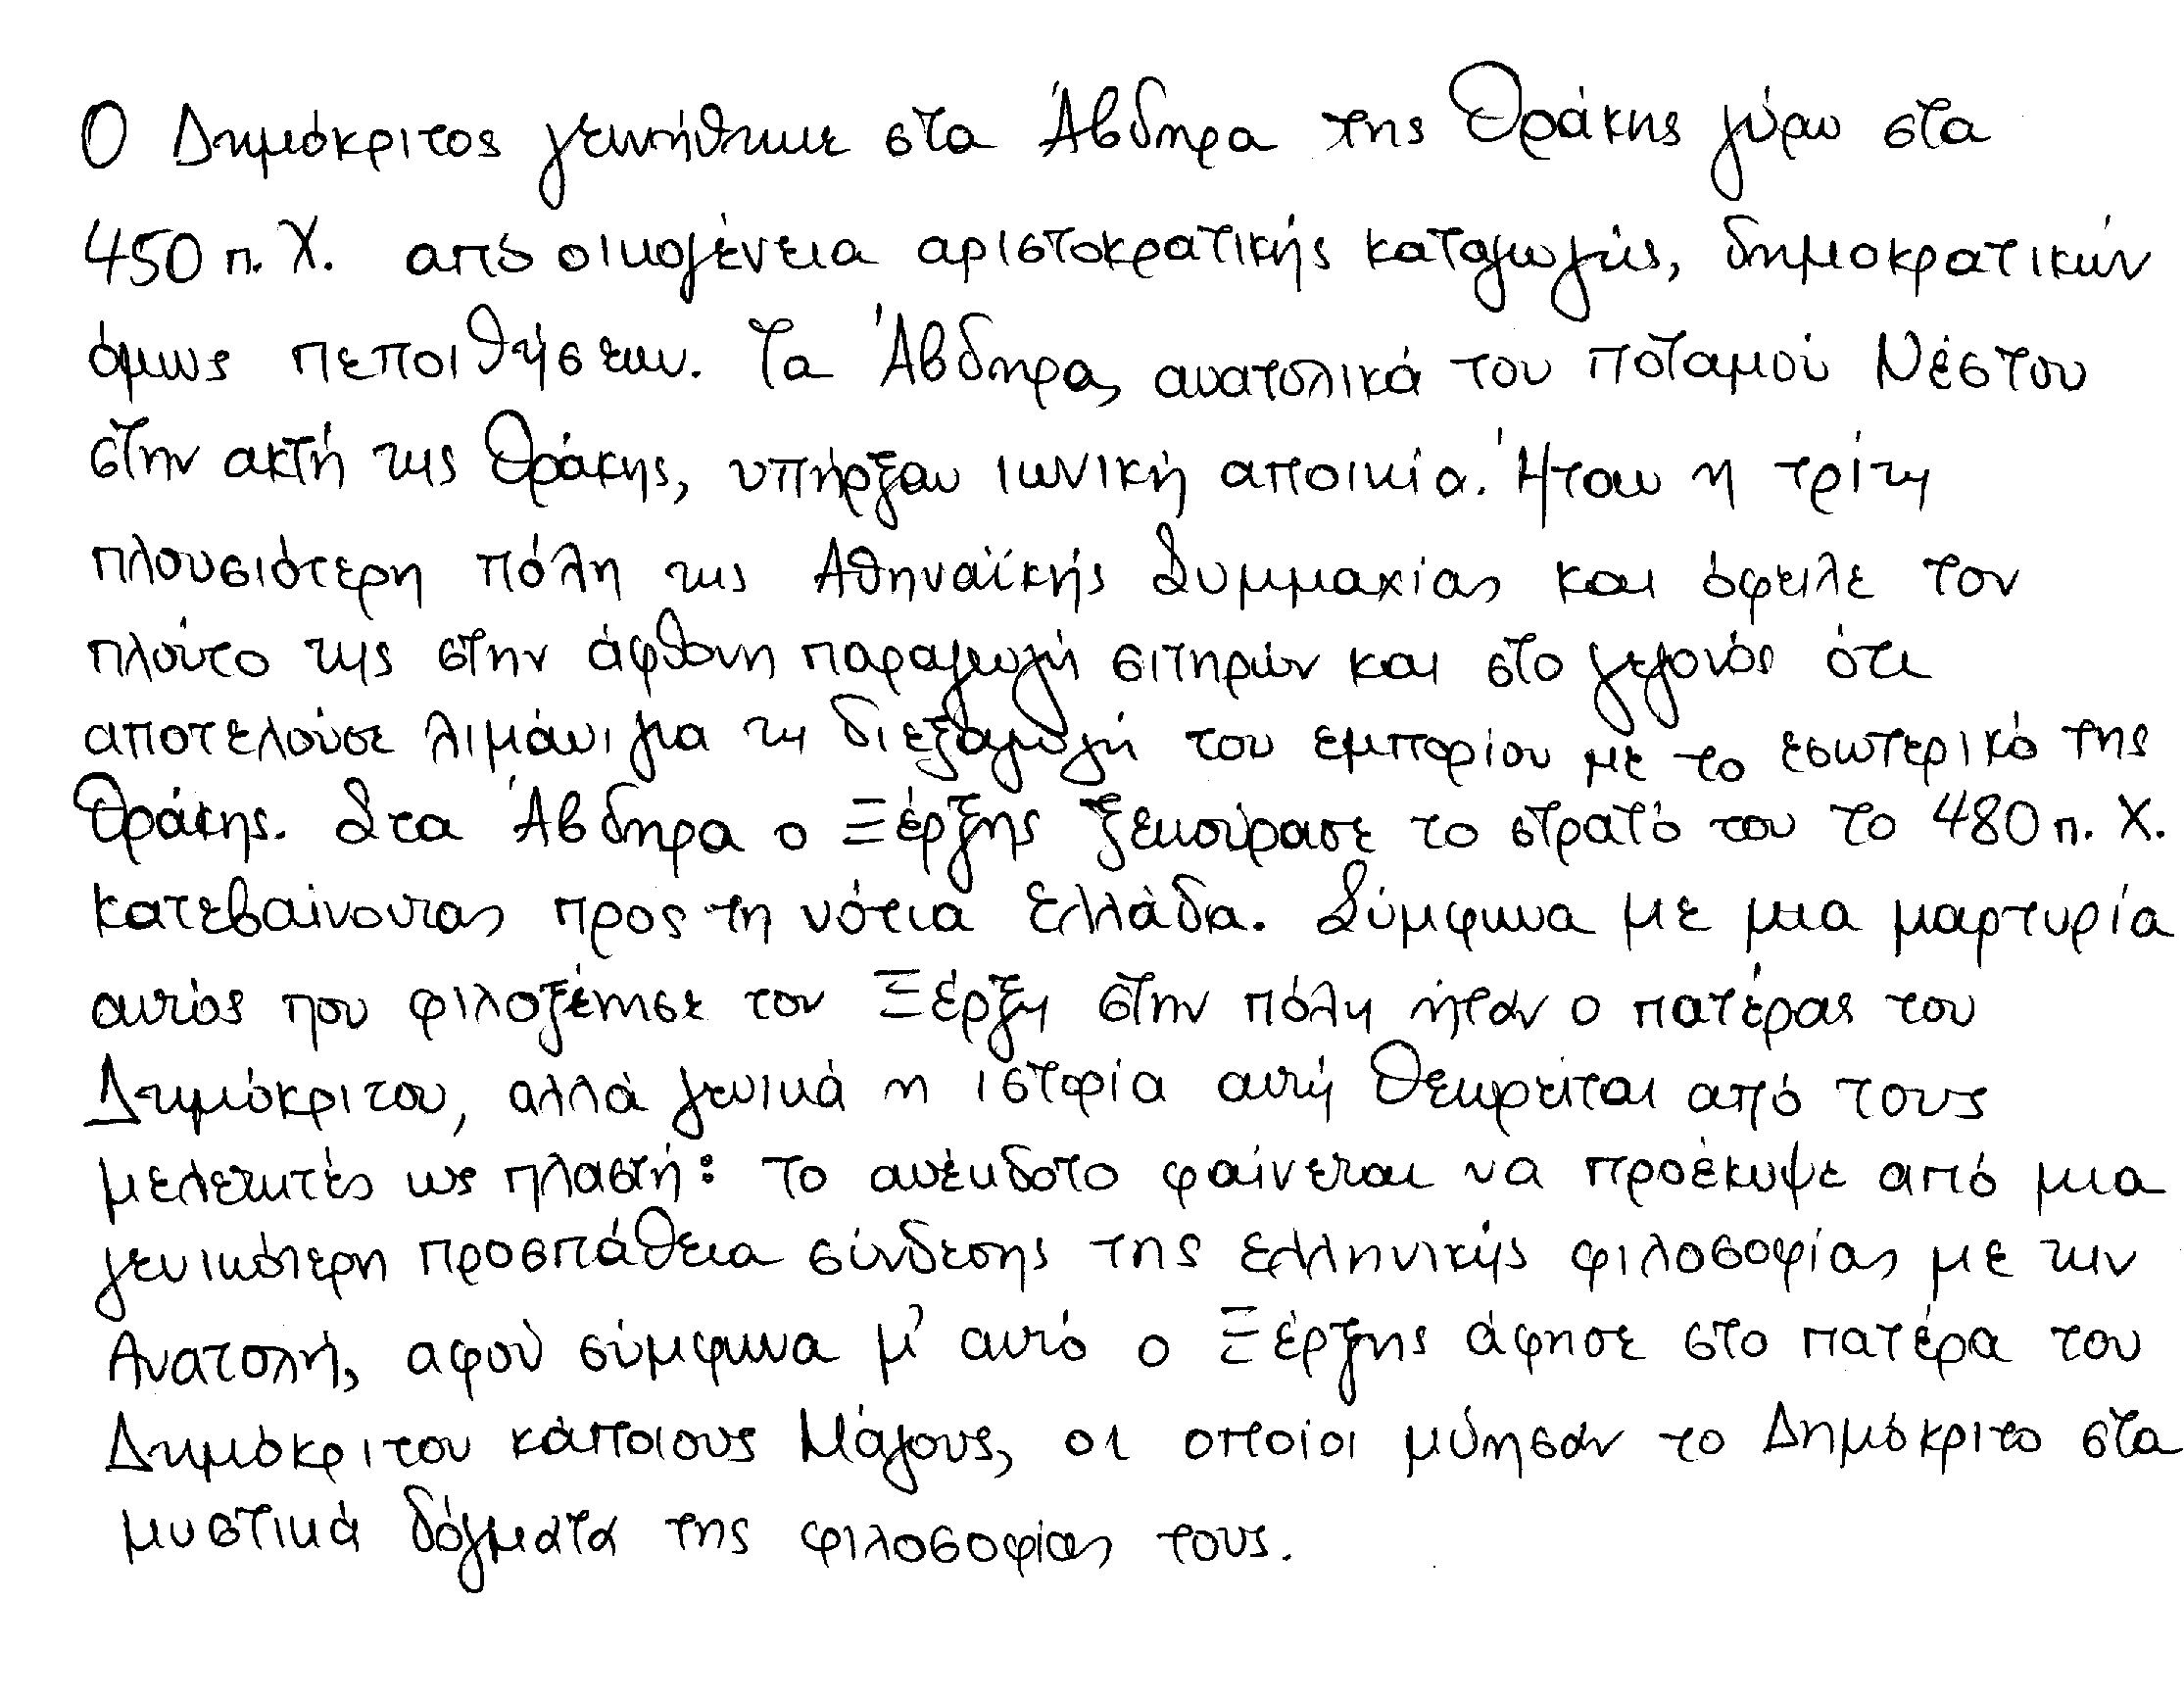 Ο Δημόκριτος γεννήθηκε στα Άβδηρα της Θράκης γύρω στα
450 π. Χ. από οικογένεια αριστοκρατικής καταγωγής, δημοκρατικών
όμως πεποιθήσεων. Τα Άβδηρα, ανατολικά του ποταμού Νέστου
στην ακτή της Θράκης, υπήρξαν ιωνική αποικία. Ήταν η τρίτη
πλουσιότερη πόλη της Αθηναϊκής Συμμαχίας και όφειλε τον
πλούτο της στην άφθονη παραγωγή σιτηρών και στο γεγονός ότι
αποτελούσε λιμάνι για τη διεξαγωγή του εμπορίου με το εσωτερικό της
Θράκης. Στα Άβδηρα ο Ξέρξης ξεκούρασε το στρατό του το 480 π. Χ.
κατεβαίνοντας προς τη νότια Ελλάδα. Σύμφωνα με μια μαρτυρία
αυτός που φιλοξένησε τον Ξέρξη στην πόλη ήταν ο πατέρας του
Δημόκριτου, αλλά γενικά η ιστορία αυτή θεωρείται από τους
μελετητές ως πλαστή: το ανέκδοτο φαίνεται να προέκυψε από μια
γενικότερη προσπάθεια σύνδεσης της ελληνικής φιλοσοφίας με την
Ανατολή, αφού σύμφωνα μ' αυτό ο Ξέρξης άφησε στο πατέρα του
Δημόκριτου κάποιους Μάγους, οι οποίοι μύησαν το Δημόκριτο στα
μυστικά δόγματα της φιλοσοφίας τους.